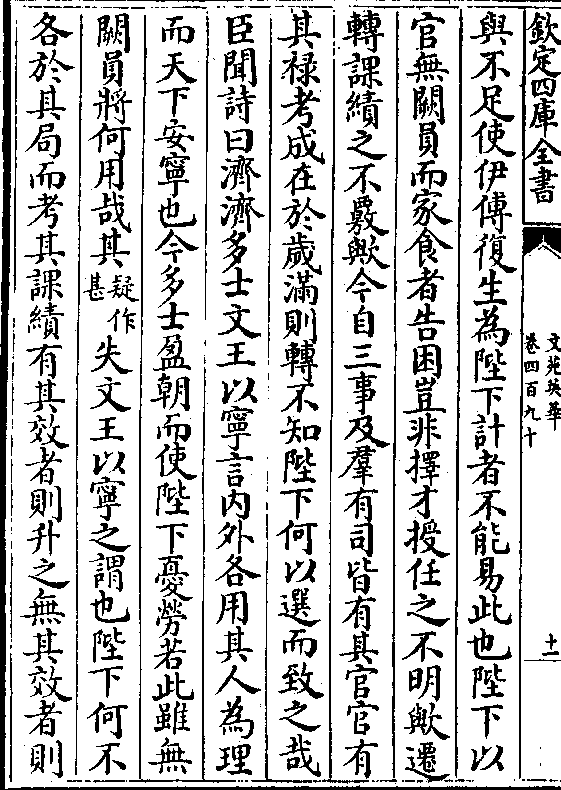 欽定四庫全書
文苑英華
卷四百九十
十一
與不足使伊傅復生為陛下計者不能易此也陛下以
官無闕員而家食者告困豈非擇才授任之不明歟遷
轉課績之不覈歟今自三事及羣有司皆有其官官有
其禄考成在於歲滿則轉不知陛下何以選而致之哉
臣聞詩曰濟濟多士文王以寧言内外各用其人為理
而天下安寧也今多士盈朝而使陛下憂勞若此雖無
闕員將何用哉其疑作甚失文王以寧之謂也陛下何不
各於其局而考其課績有其效者則升之無其效者則